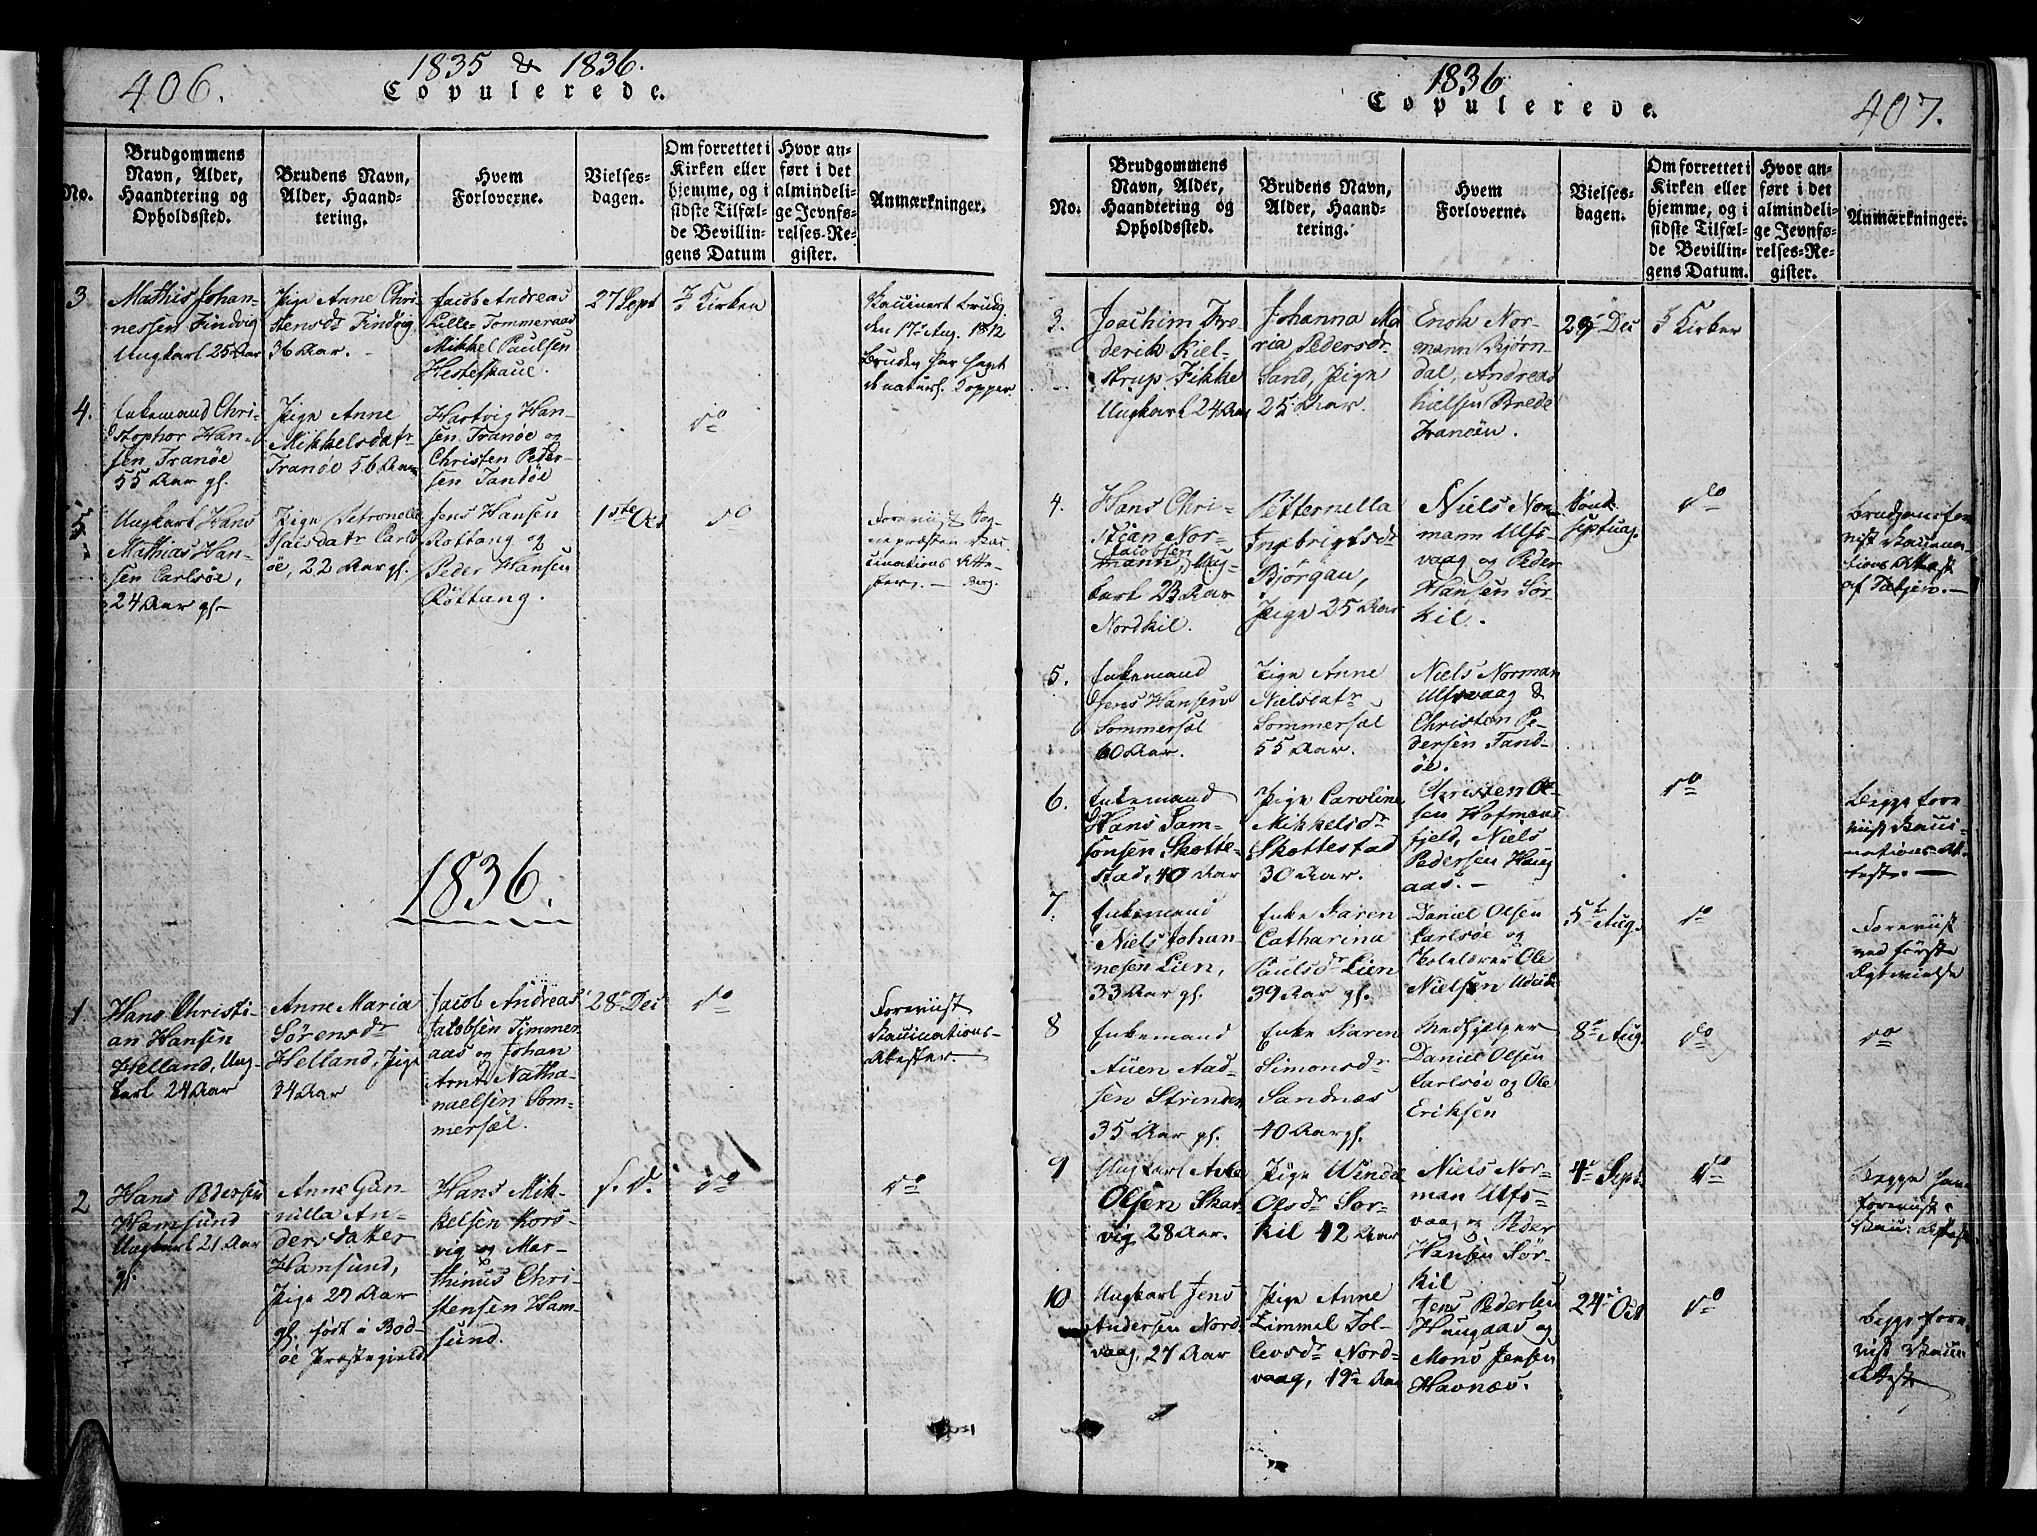 406.
1835 & 1836.
Copulerede.
No.
Brudgommens
Navn, Alder,
Haandtering og
Opholdssted.
Brudens Navn,
Alder, Haand-
tering.
Hvem
Forloverne.
Vielses-
dagen.
Om forrettet i
Kirken eller
hjemme, og i
sidste Tilfæl-
de Bevillin-
gens Datum
Hvor an-
ført i det
almindeli-
ge Jevnfø-
relses-Re-
gister.
Anmærkninger.
3
Mathis Johan-
nessen Findvig
Ungkarl 25 Aar
Pige Anne Chri-
stensdr Findvig
36 Aar.
Jacob Andreas
Lille-Tommeraas
Mikkel Paulsen
Hesteskaue.
27 Sept
I Kirken
Vaccinert Brudg.
den 17 Aug. 1812
Bruden har havt
de naturl. Kopper.
4.
Enkemand Chri-
stopher Han-
sen Tranøe
55 Aar gl.
Pige Anne
Mikkelsdatr
Tranøe 56 Aar
Hartvig Han-
sen Tranøe og
Christen Peder-
sen Tandøe
do
5
Ungkarl Hans
Mathias Han-
sen Carlsøe,
24 Aar gl-
Pige Petronelle
Isaisdatr Carls-
øe, 22 Aar gl.
Jens Hansen
Røttang og
Peder Hansen
Røttang.
1ste Oct
do
1836.
1.
Hans Christi-
an Hansen
Helland, Ung-
karl 24 Aar
Anne Maria
Sørensdr
Helland, Pige
34 Aar
Jacob Andreas
Jacobsen Timmer-
aas og Johan
Arnt Natha-
naelsen Som-
mersæl.
28 Dec
do
Foreviist
Vaccinations-
Attester.
2
Hans Pedersen
Hamsund
Ungkarl 21 Aar
gl.
Anne Gun-
nilla An-
dersdatter
Hamsund,
Pige 27 Aar
gl. født i Bod-
øe Præstegield
Hans Mik-
kelsen Kors-
vig og Mar-
thinus Chri-
stensen Ham-
sund.
s. d.
do
do
1836
Copulerede.
407.
No.
Brudgommens
Navn, Alder,
Haandtering og
Opholdssted.
Brudens Navn,
Alder, Haand-
tering.
Hvem
Forloverne.
Vielses-
dagen.
Om forrettet i
Kirken eller
hjemme, og i
sidste Tilfæl-
de Bevillin-
gens Datum.
Hvor an-
ført i det
almindeli-
ge Jevnfø-
relses-Re-
gister.
Anmærkninger.
3.
Joachim Fre-
derik Kiel-
strup Fikke
Ungkarl 24 Aar
Johanna Ma-
ria Pedersdr
Sand, Pige
25 Aar.
Enok Nor-
mann Bjørn-
dal, Andreas
Brede
Tranøen.
29 Dec
I Kirken
4.
Hans Chri-
stian Nor-
Jacobsen
mann, Ung-
karl 23 Aar
Nordkil.
Petternella
Ingebrigtsdr
Bjørgan,
Pige 25 Aar
Niels Nor-
mann Ulfs-
vaag og Peder
Hansen Sør-
kil.
Sønd.
septuag.
do
5.
Enkemand
Jens Hansen
Sommersæl
60 Aar.
Pige Anne
Nielsdatr
Sommersæl
55 Aar.
Niels Norman
Ulfsvaag &
Christen Pe-
dersen Tand-
øe.
6.
Enkemand
Hans Sam-
sonsen Skotte-
stad, 40 Aar
Pige Caroline
Mikkelsdr
Skottestad
30 Aar.
Christen Ol-
sen Hofmans-
fjeld, Niels
Pedersen Haug-
aas.
do
Begge fore-
viist Vacci-
nations-At-
test.
7.
Enkemand
Niels Johan-
nesen Lien,
33 Aar gl.
Enke Karen
Catharina
Paulsdr Lien
39 Aar gl.
Daniel Olsen
Carlsøe og
Skolelærer Ole
Nielsen
5t Aug.
do
Foreviist
ved første
Egtevielse
8
Enkemand
Auen Aad-
sen Strinden
35 Aar gl.
Enke Karen
Simonsdr
Sandnæs
40 Aar gl.
Medhjelper
Daniel Olsen
Carlsøe og Ole
Eriksen
8 Aug
do
do
9
Ungkarl
Olsen Skar-
vig 28 Aar.
Pige
Olsdr Sør-
kil 42 Aar
Niels Nor-
man Ulfs-
vaag og Peder
Hansen Sør-
kil
4 Sept
do
Begge have
foreviist
Vacc. Attest
10
Ungkarl Jens
Andersen Nord-
vaag, 27 Aar
Pige Anne
Zimmel Tol-
levsdr Nord-
vaag, 19 Aar
Jens Pedersen
Haugaas og
Mons Jensen
Havnæs.
24 Oct
do
Begge fore-
vist Vaccin
Attest